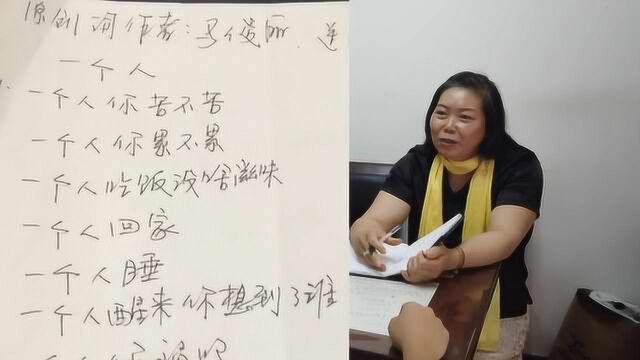 原创词作者:马俊丽.
一个人
一个人你苦不苦
一个人你累不累
一个人吃饭没啥滋味
一个人回家
一个人睡
一个人醒来你想到了谁
一个人